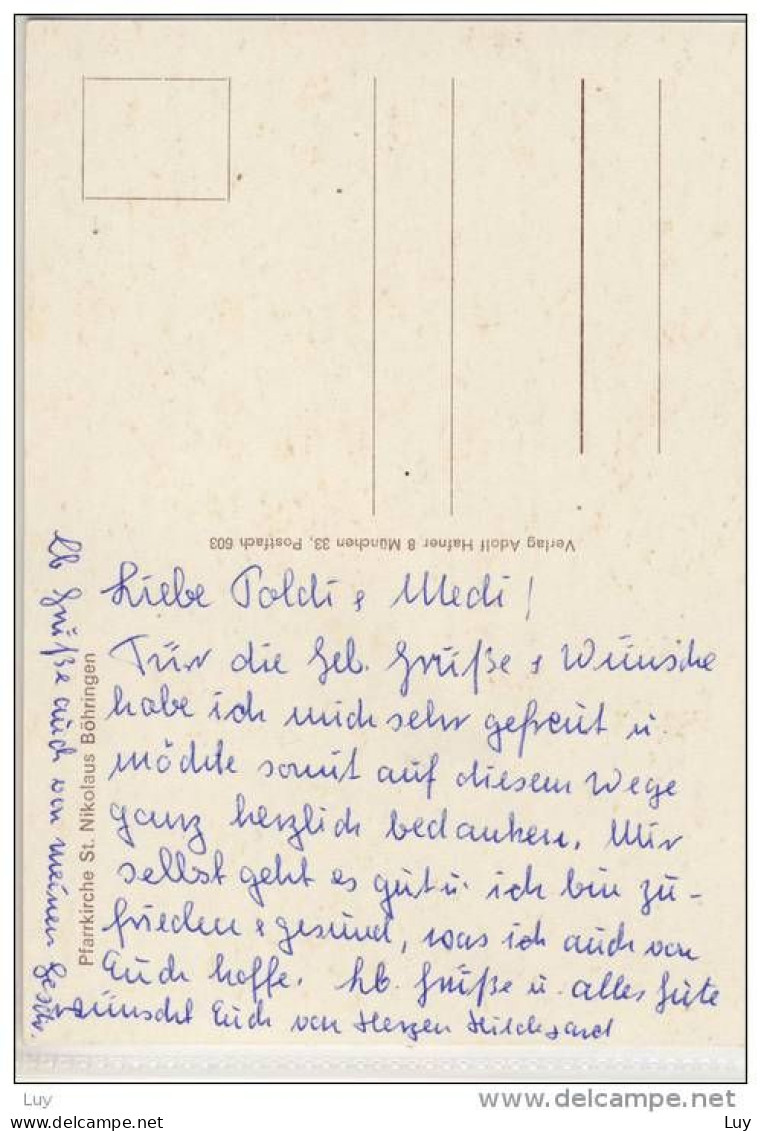 Verlag Adolf Hafner 8 München 33, Postfach 603
Pfarrkirche St. Nikolaus Böhringen
Liebe Poldi & Medi!
Für die Geb. Grüße & Wünsche
habe ich mich sehr gefreut u.
möchte somit auf diesem Wege
ganz herzlich bedanken. Mir
selbst geht es gut u. ich bin zu-
frieden & gesund, was ich auch von
Euch hoffe. Lb. Grüße u. alles Gute
wünscht Euch von Herzen Hildegard
Lb Grüße auch von meinen Geschw.
Luy
delcampe.net
Luy